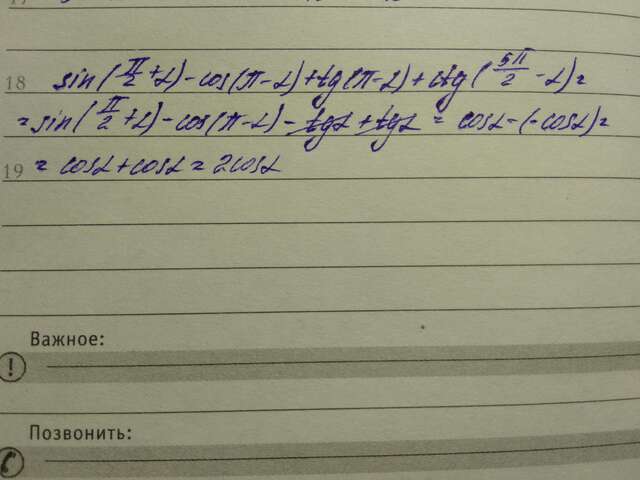 18 sin(π/2+α)-cos(π-α)+tg(π-α)+ctg(5π/2-α)=
=sin(π/2+α)-cos(π-α)-tgα+tgα = cosα-(-cosα)=
19 = cosα+cosα=2cosα
Важное:
!
Позвонить: